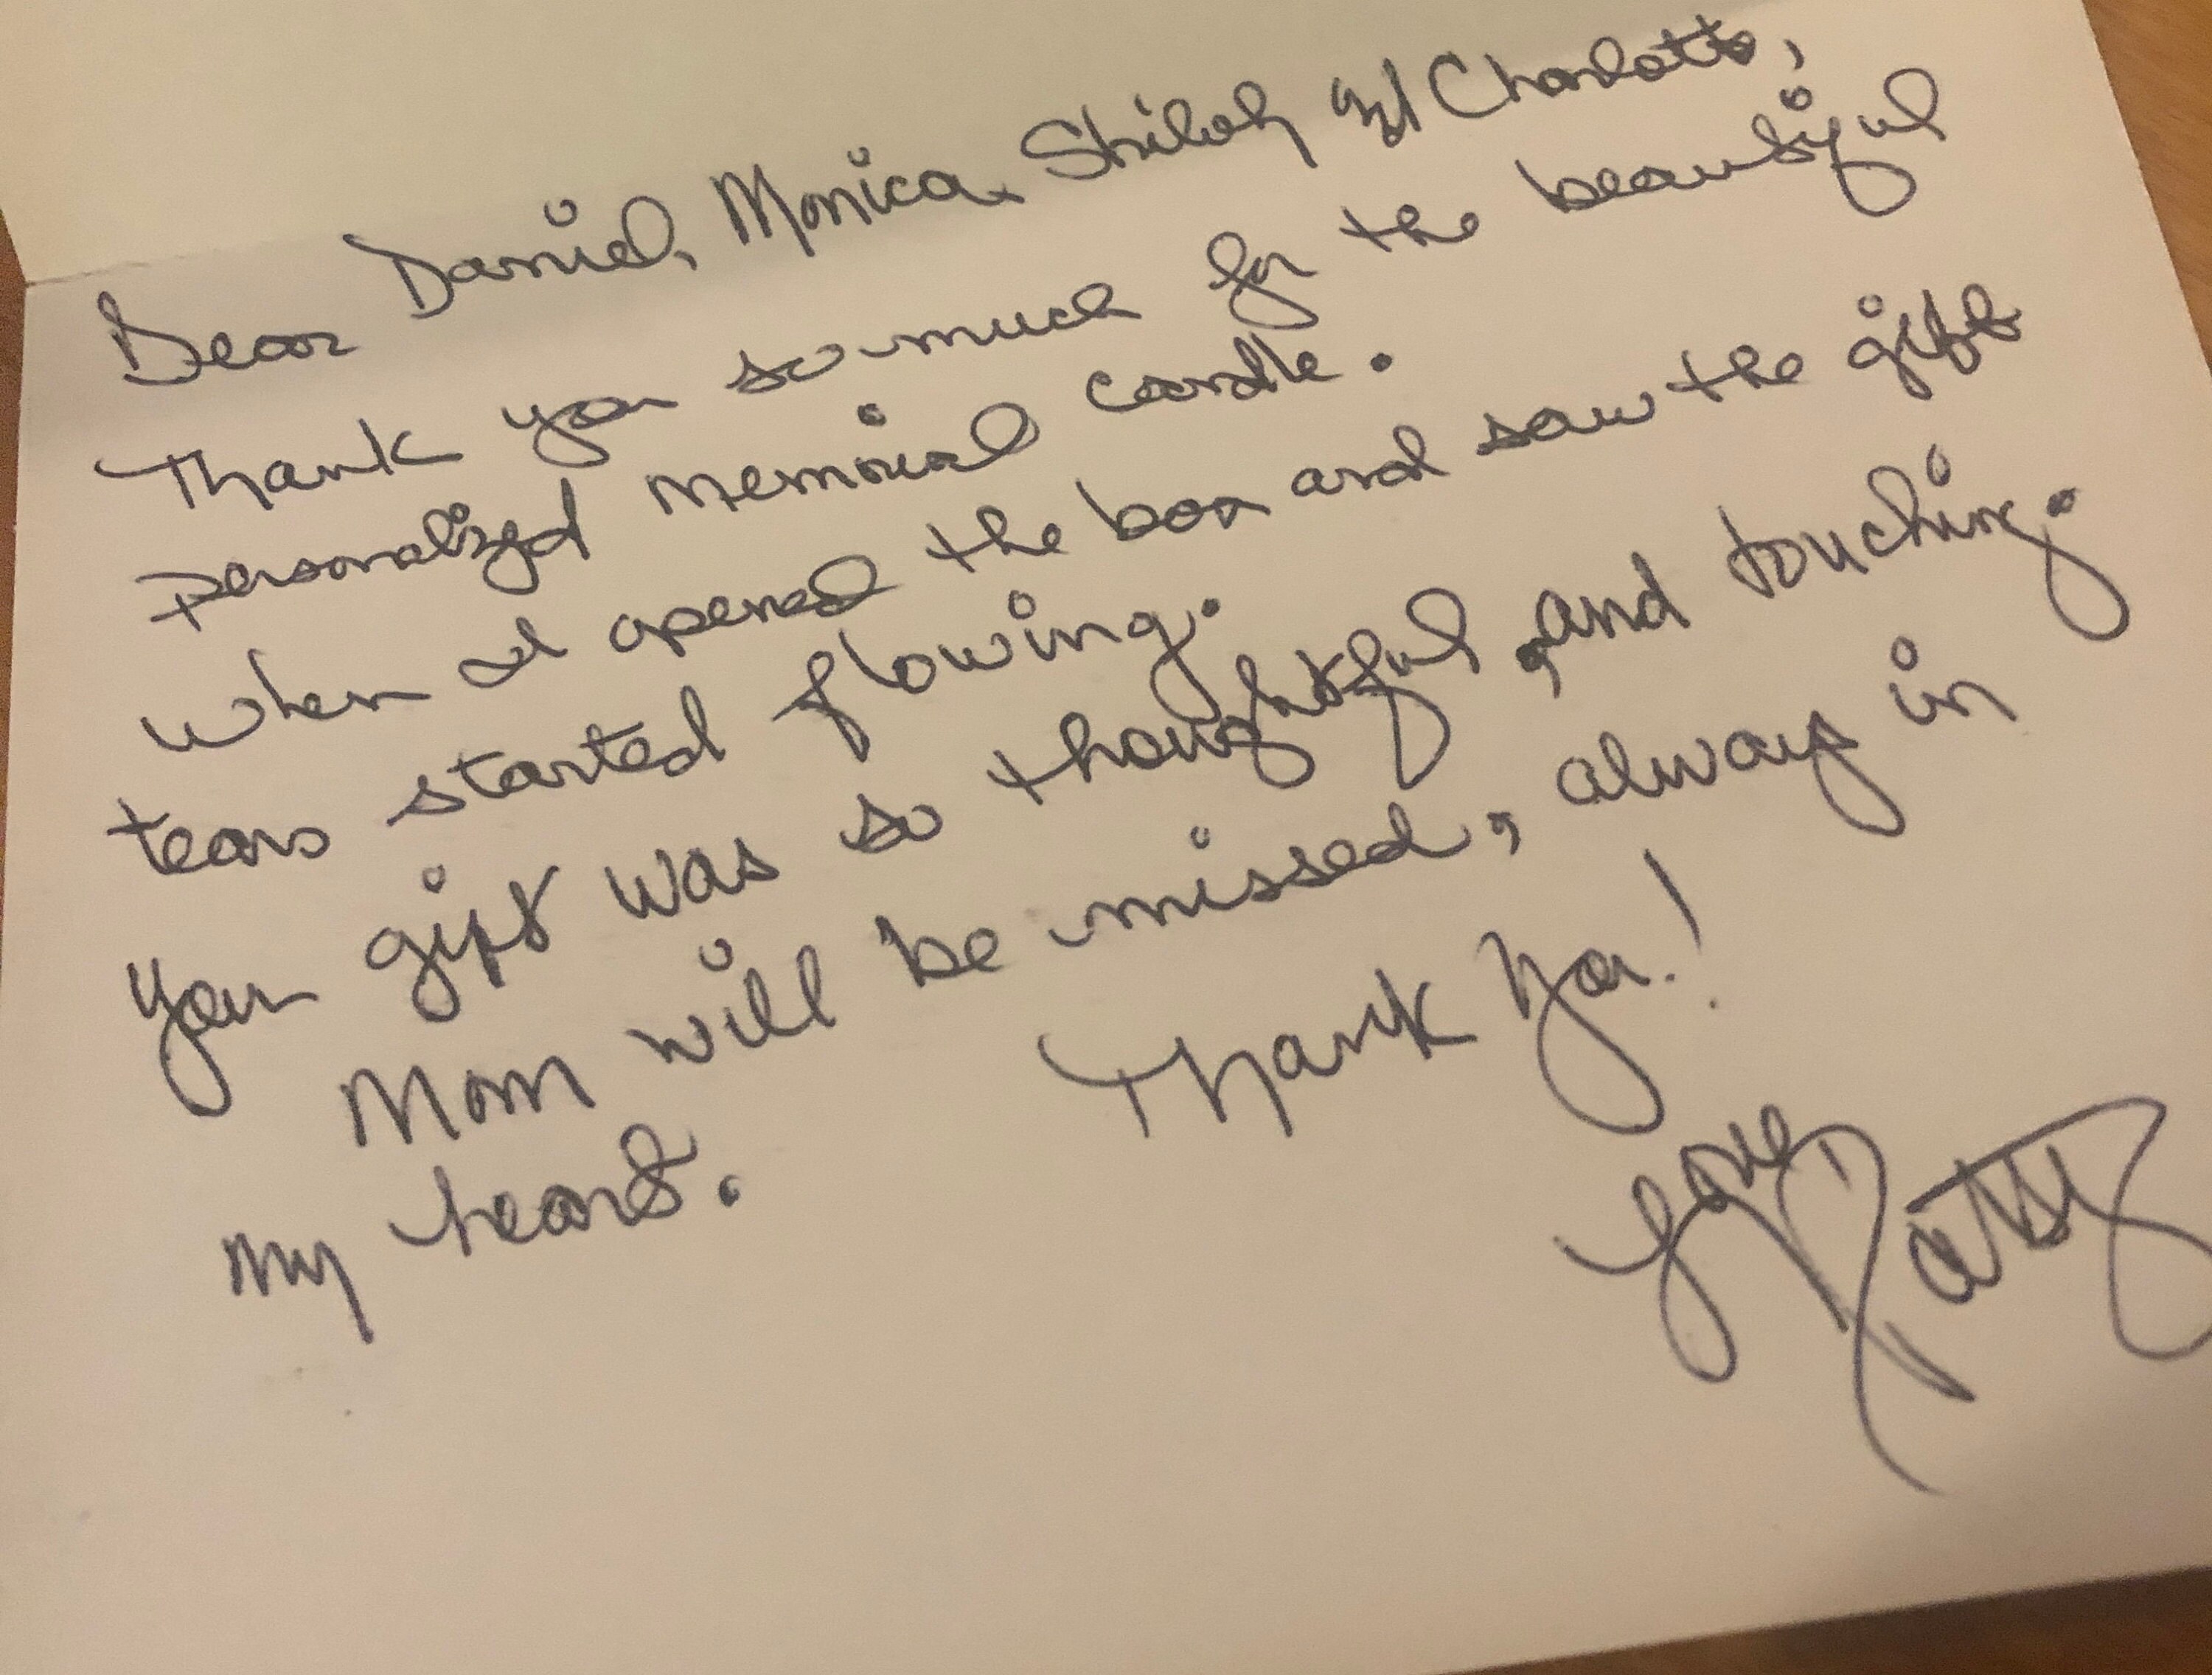 Dear Daniel, Monica, Shiloh and Charlotte,
Thank you so much for the beautiful
personalized memorial candle.
When I opened the box and saw the gift
tears started flowing.
Your gift was so thoughtful, and touching.
Mom will be missed, always in
my heart.
Thank You!
Love,
Patsy